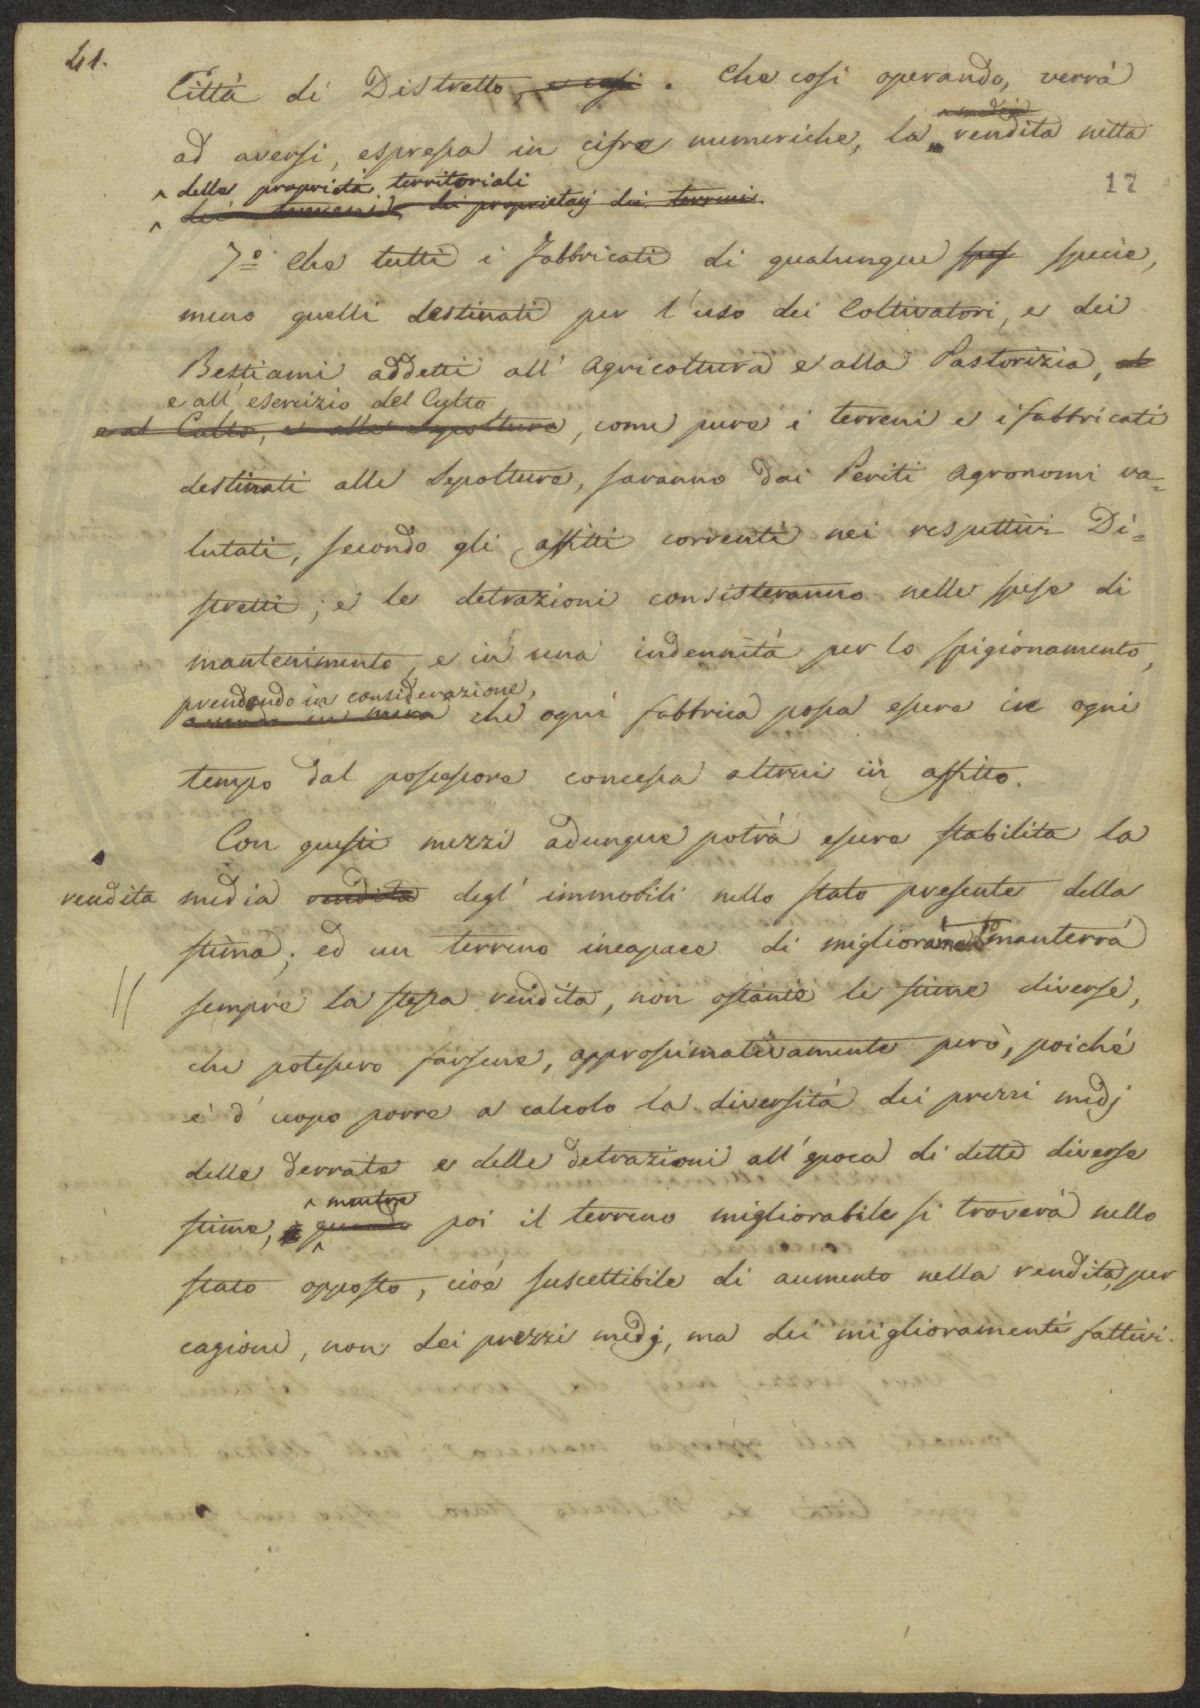 41.
Città di Distretto, e così. Che così operando, verrà
media
ad aversi, espressa in cifre numeriche, la rendita netta
17
delle proprietà territoriali
dei terreni, dei proprietarj dei terreni.
7º Che tutti i Fabbricati di qualunque spes specie,
meno quelli destinati per l'uso dei Coltivatori, e dei
Bestiami addetti all'Agricoltura e alla Pastorizia,
e all'esercizio del Culto
e al Culto, e alle Sepolture, come pure i terreni e i fabbricati
destinati alle Sepolture, saranno dai Periti Agronomi va=
lutati, secondo gli affitti correnti nei respettivi Di=
stretti; e le detrazioni consisteranno nelle spese di
mantenimento, e in una indennità per lo spigionamento,
prendendo in considerazione,
avendo in mira che ogni fabbrica possa essere in ogni
tempo dal possessore concessa altrui in affitto.
Con questi mezzi adunque potrà essere stabilita la
rendita media rendita degl'immobili nello stato presente della
stima; ed un terreno incapace di migliorare manterrà
sempre la stessa rendita, non ostante le stime diverse,
che potessero farsene, approssimativamente però, poiché
è d'uopo porre a calcolo la diversità dei prezzi medj
delle derrate e delle detrazioni all'epoca di dette diverse
mentre
stime, quando poi il terreno migliorabile si troverà nello
stato opposto, cioè suscettibile di aumento nella rendita, per
cagione, non dei prezzi medj, ma dei miglioramenti fattivi.